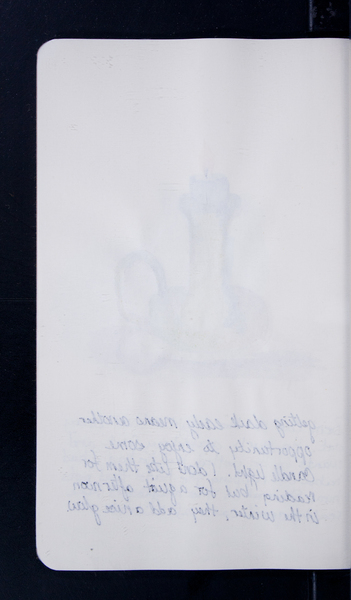 getting dark early means another
opportunity to enjoy some
candle light. I don't like them for
reading but for a quiet afternoon
in the winter, they add a nice glow